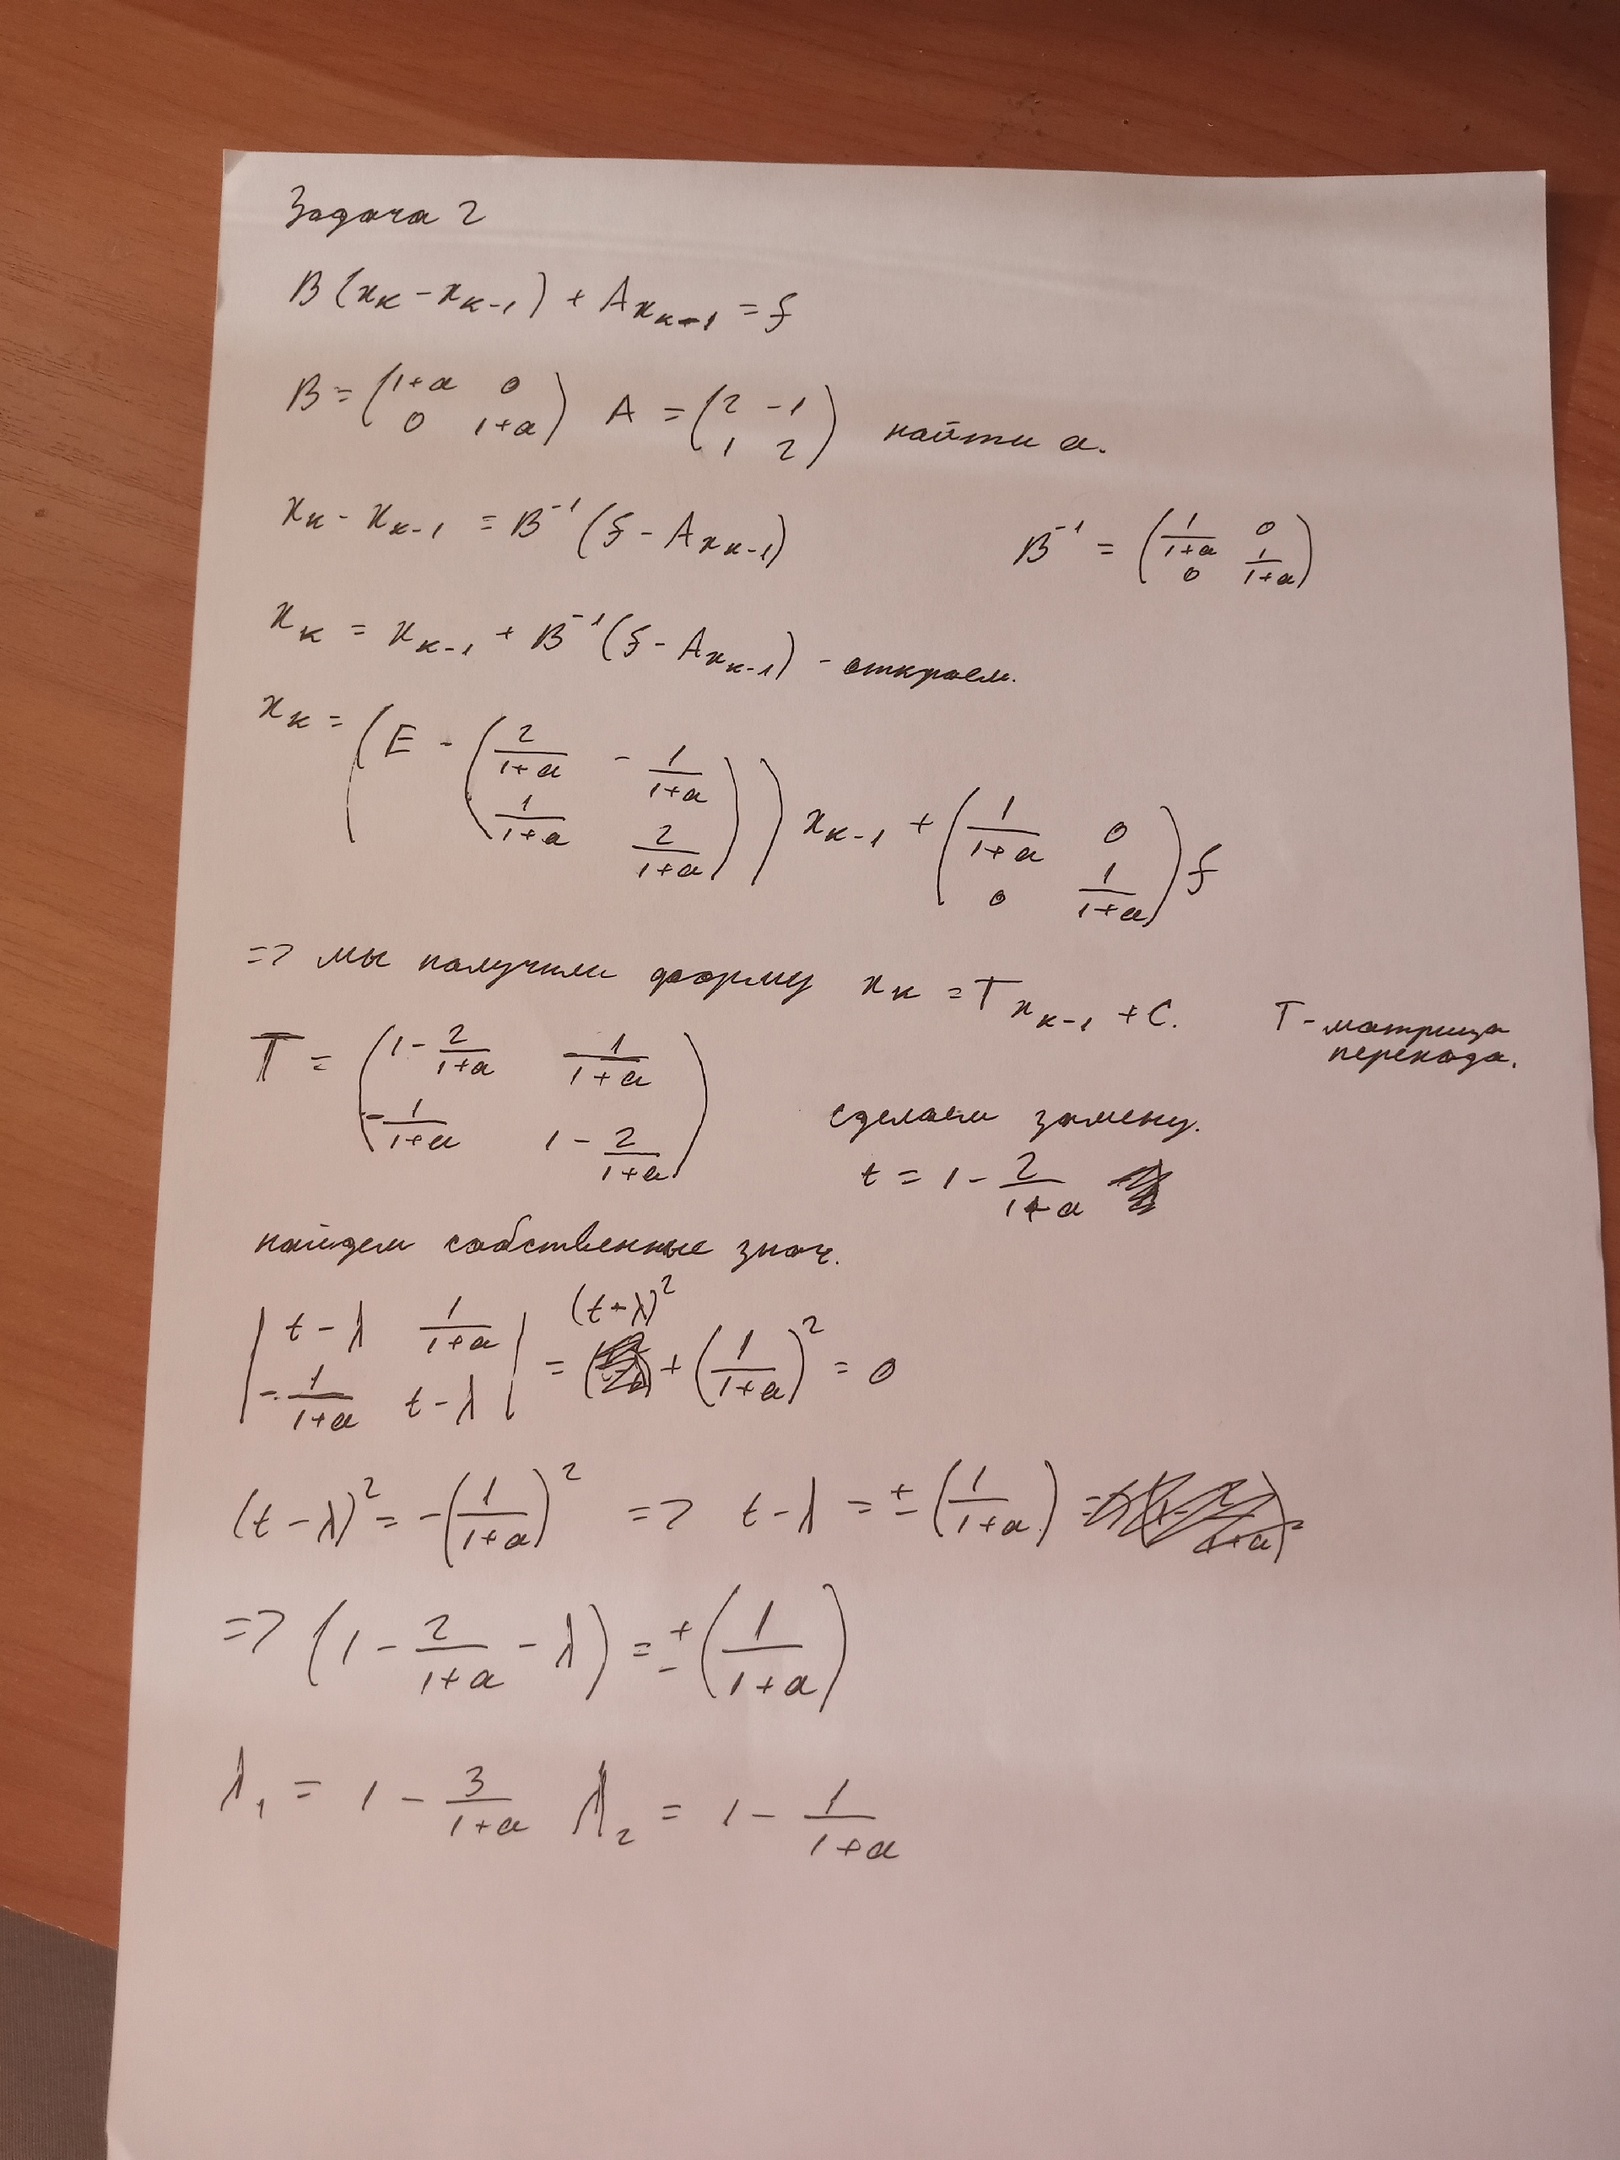 Задача 2
B(xₖ - xₖ₋₁) + Axₖ₋₁ = f
B = (1+a 0; 0 1+a) A = (2 -1; 1 2) найти a.
xₖ - xₖ₋₁ = B⁻¹(f - Axₖ₋₁) B⁻¹ = (1/(1+a) 0; 0 1/(1+a))
xₖ = xₖ₋₁ + B⁻¹(f - Axₖ₋₁) - откроем.
xₖ = (E - (2/(1+a) -1/(1+a); 1/(1+a) 2/(1+a))) xₖ₋₁ + (1/(1+a) 0; 0 1/(1+a)) f
=> мы получили форму xₖ = Txₖ₋₁ + C. T - матрица
перехода.
T = (1 - 2/(1+a) 1/(1+a); -1/(1+a) 1 - 2/(1+a))
сделаем замену.
t = 1 - 2/(1+a)
найдем собственные знач.
|t-λ 1/(1+a); -1/(1+a) t-λ| = (t+λ)² + (1/(1+a))² = 0
(t-λ)² = -(1/(1+a))² => t-λ = ±(1/(1+a))
=> (1 - 2/(1+a) - λ) = ±(1/(1+a))
λ₁ = 1 - 3/(1+a) λ₂ = 1 - 1/(1+a)